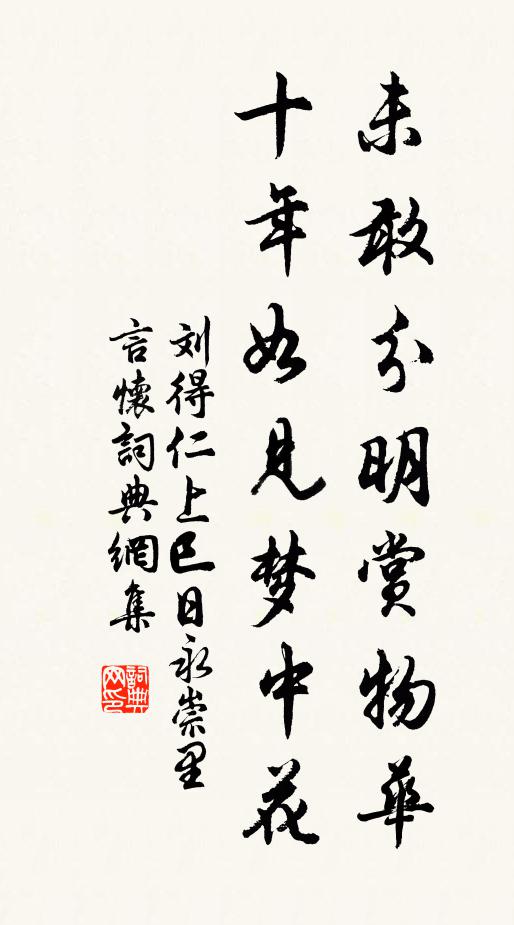 未敢分明赏物華
十年如见梦中花
刘得仁上巳日永崇里
言懷詞典網集
詞典网印